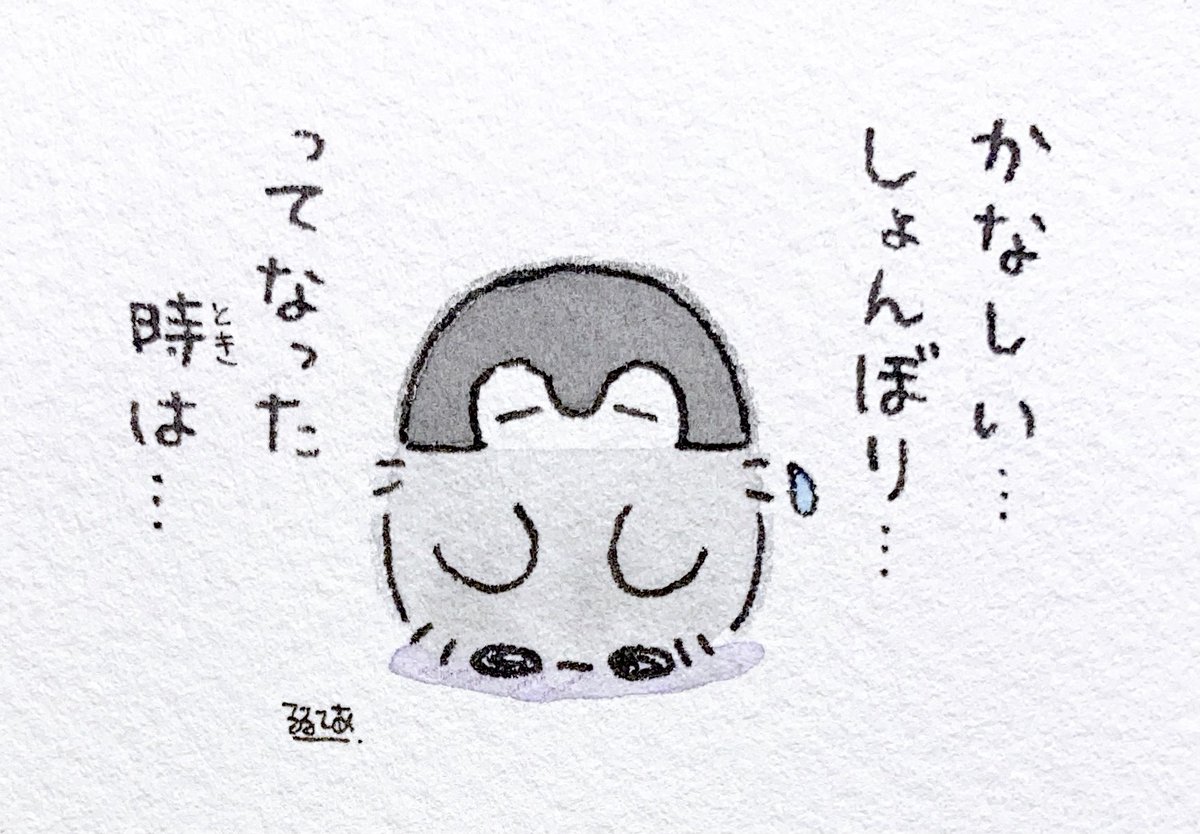 かなしい…
しょんぼり…
ってなった
時は…
とき
るるてあ